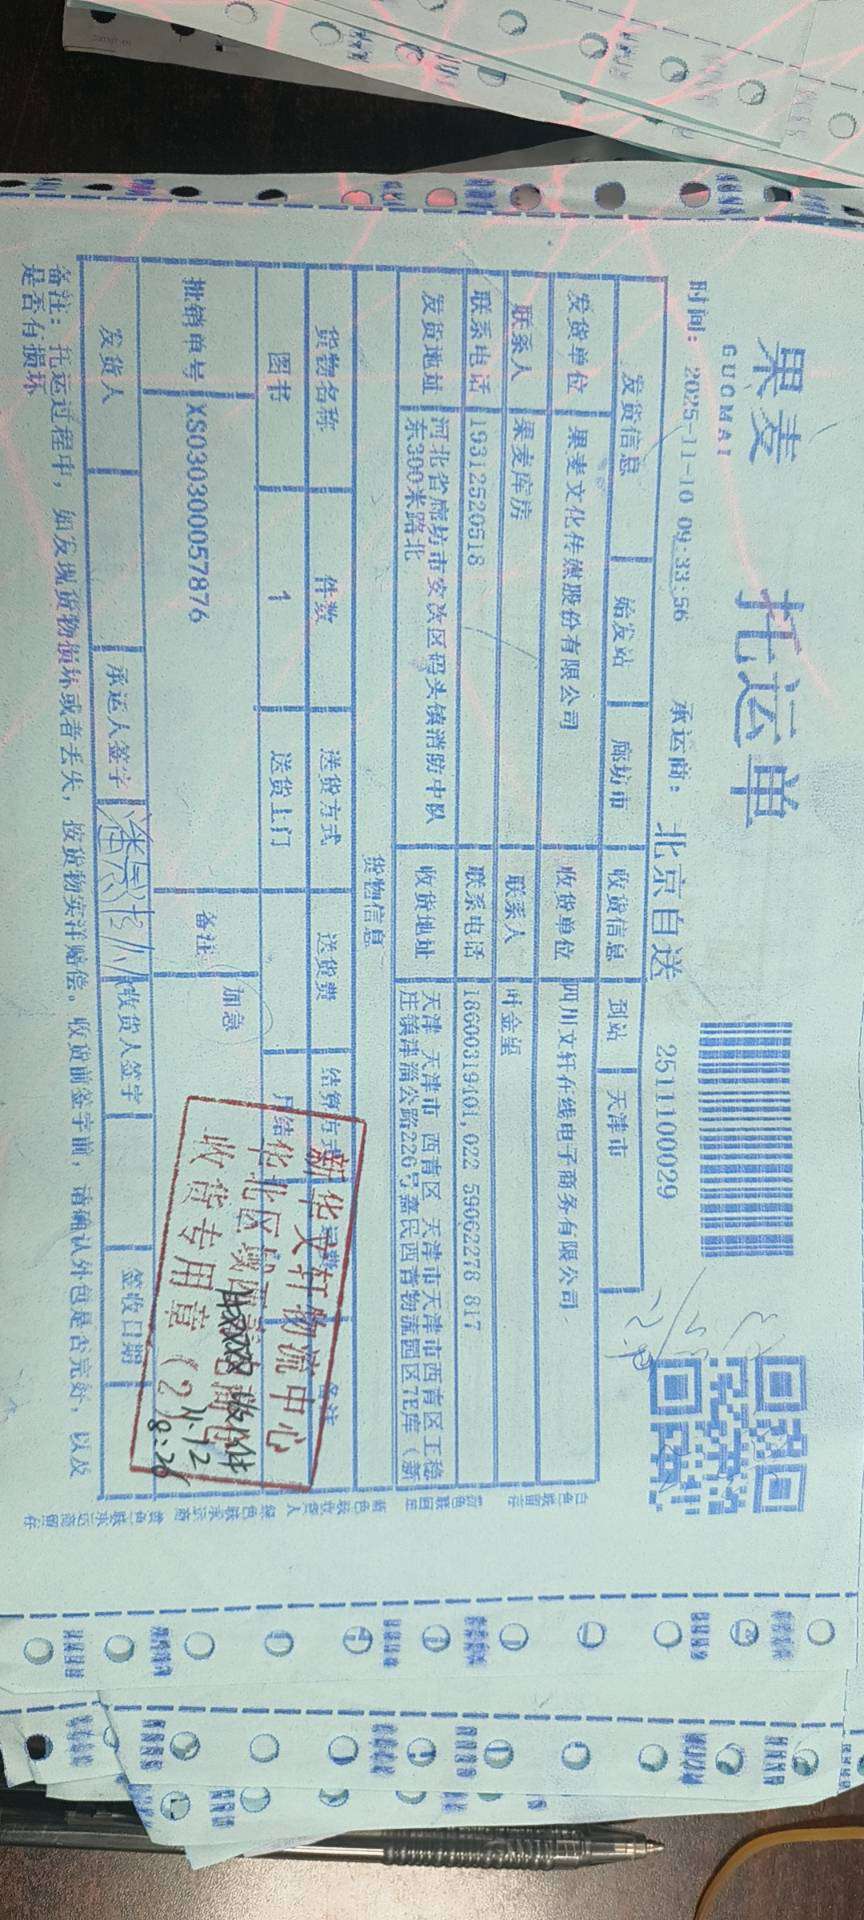 果麦
GUOMAI
托运单
时间: 2025-11-10 09:33:56 承运商: 北京自送 2511100029
发货信息 始发站 廊坊市 收货信息 到站 天津市
发货单位 果麦文化传媒股份有限公司 收货单位 四川文轩在线电子商务有限公司
联系人 果麦库房 联系人 叶金望
联系电话 19312520518 联系电话 18600319401,022 59062278 817
发货地址 河北省廊坊市安次区码头镇消防中队东300米路北 收货地址 天津 天津市 西青区 天津市天津市西青区王稳庄镇津淄公路226号嘉民西青物流园区7E库(新
货物信息
货物名称 件数 送货方式 送货费 结算方式 备注
图书 1 送货上门 月结
批销单号 XS030300057876 备注 加急
新华文轩物流中心
华北区
收货专用章(2)
11.12
8:26
发货人 承运人签字 收货人签字 签收日期
备注:托运过程中,如发现货物损坏或者丢失,按货物实洋赔偿。收货前签字前,请确认外包是否完好,以及
是否有损坏